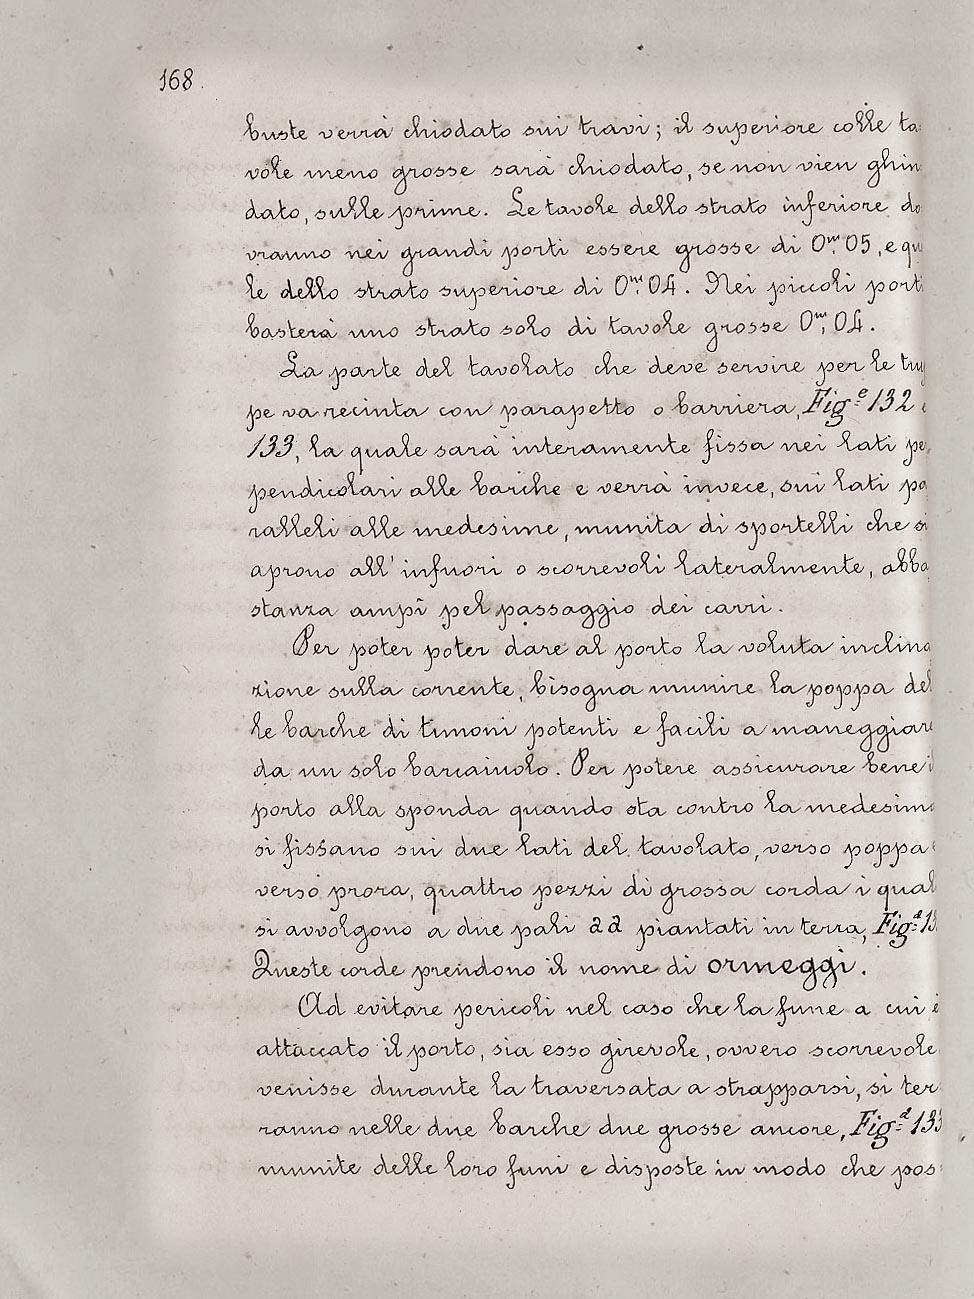 168.
buste verrà chiodato sui travi; il superiore colle ta
vole meno grosse sarà chiodato, se non vien ghin
dato, sulle prime. Le tavole dello strato inferiore do
vranno nei grandi porti essere grosse di 0,ᵐ05, e qu
le dello strato superiore di 0,ᵐ04. Nei piccoli porti
basterà uno strato solo di tavole grosse 0,ᵐ04.
La parte del tavolato che deve servire per le tru
pe va recinta con parapetto o barriera, Figᵉ 132 e
133, la quale sarà interamente fissa nei lati per
pendicolari alle barche e verrà invece, sui lati pa
ralleli alle medesime, munita di sportelli che si
aprono all'infuori o scorrevoli lateralmente, abba
stanza ampî pel passaggio dei carri.
Per poter poter dare al porto la voluta inclina
zione sulla corrente, bisogna munire la poppa del
le barche di timoni potenti e facili a maneggiare
da un solo barcaiuolo. Per potere assicurare bene il
porto alla sponda quando sta contro la medesima
si fissano sui due lati del tavolato, verso poppa e
verso prora, quattro pezzi di grossa corda i qual
si avvolgono a due pali aa piantati in terra, Figᵃ 13
Queste corde prendono il nome di ormeggi.
Ad evitare pericoli nel caso che la fune a cui è
attaccato il porto, sia esso girevole, ovvero scorrevole
venisse durante la traversata a strapparsi, si ter
ranno nelle due barche due grosse ancore, Figᵃ 133
munite delle loro funi e disposte in modo che pos